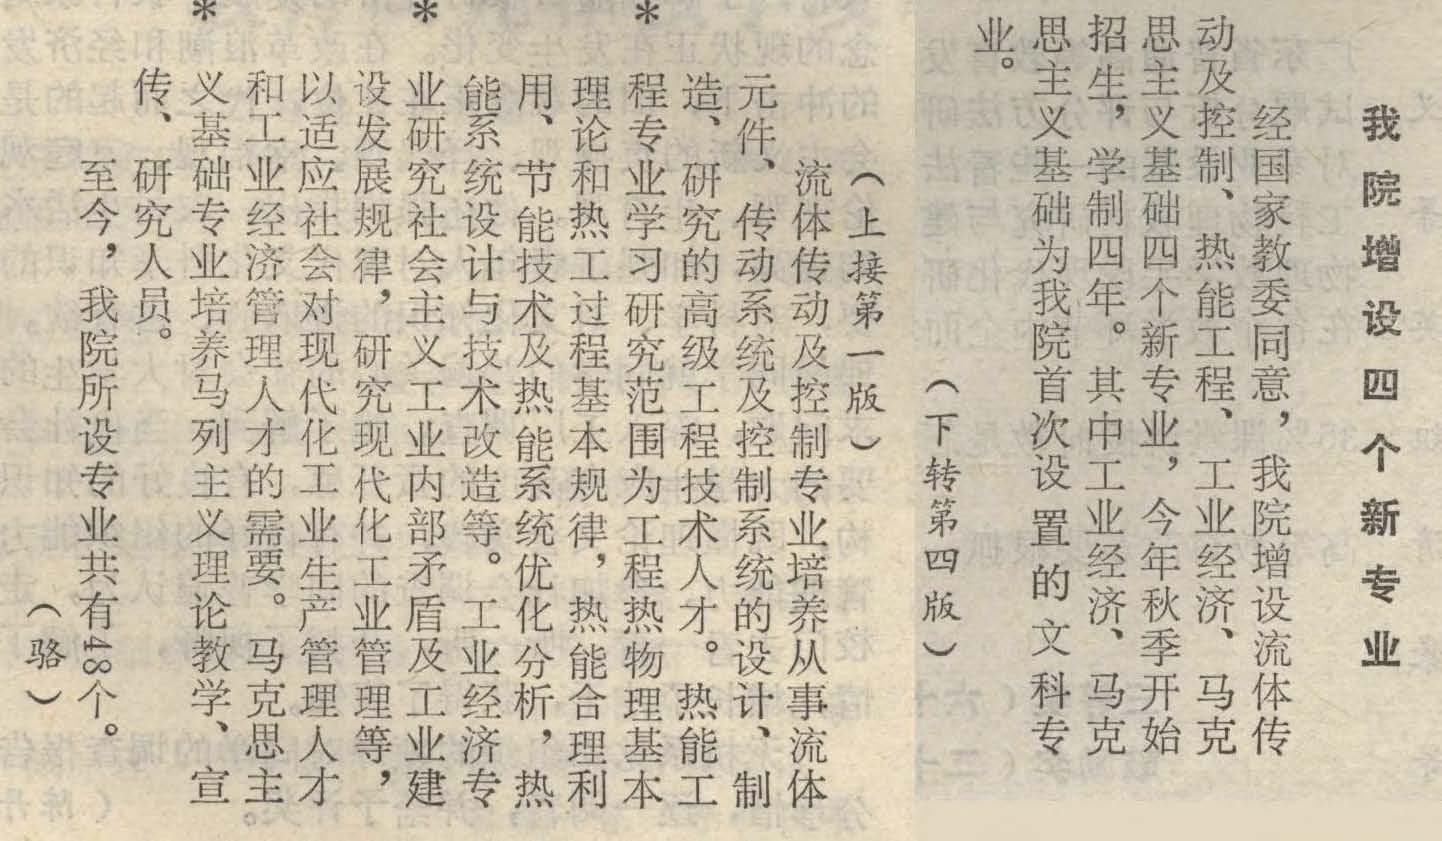 我院增设四个新专业
经国家教委同意，我院增设流体传
动及控制、热能工程、工业经济、马克
思主义基础四个新专业，今年秋季开始
招生，学制四年。其中工业经济、马克
思主义基础为我院首次设置的文科专
业。
（下转第四版）
（上接第一版）
流体传动及控制专业培养从事流体
元件、传动系统及控制系统的设计、制
造、研究的高级工程技术人才。热能工
程专业学习研究范围为工程热物理基本
理论和热工过程基本规律，热能合理利
用、节能技术及热能系统优化分析，热
能系统设计与技术改造等。工业经济专
业研究社会主义工业内部矛盾及工业建
设发展规律，研究现代化工业管理等，
以适应社会对现代化工业生产管理人才
和工业经济管理人才的需要。马克思主
义基础专业培养马列主义理论教学、宣
传、研究人员。
至今，我院所设专业共有48个。
（骆）
* * *